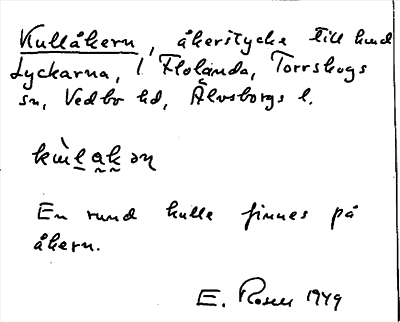 Kullåkern, åkerstycke till hmd
Lyckarna, l Flolanda, Torrskogs
sn, Vedbo hd, Älvsborgs l.
En rund kulle finnes på
åkern.
E. Rosell 1949